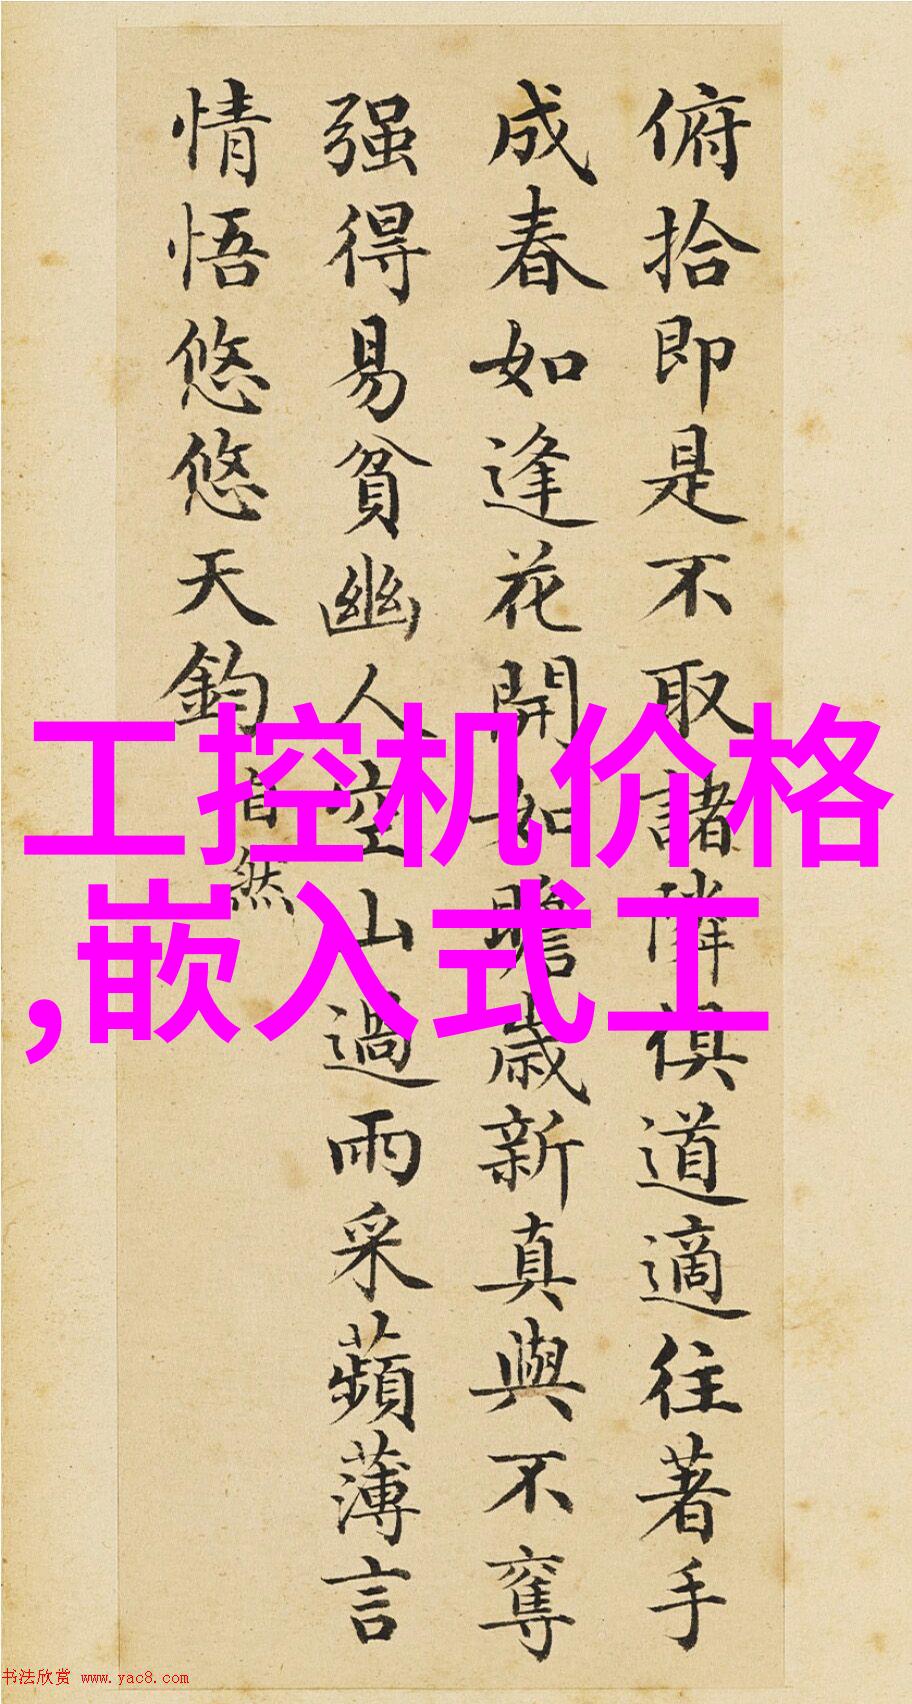 俯拾即是不取諸隣俱道適往著手
成春如逢花開如瞻歲新真與不奪
强得易貧幽人空山過雨采蘋薄言
情悟悠悠天鈞
自然
工控机价格
,嵌入式工
书法欣赏 www.yac8.com